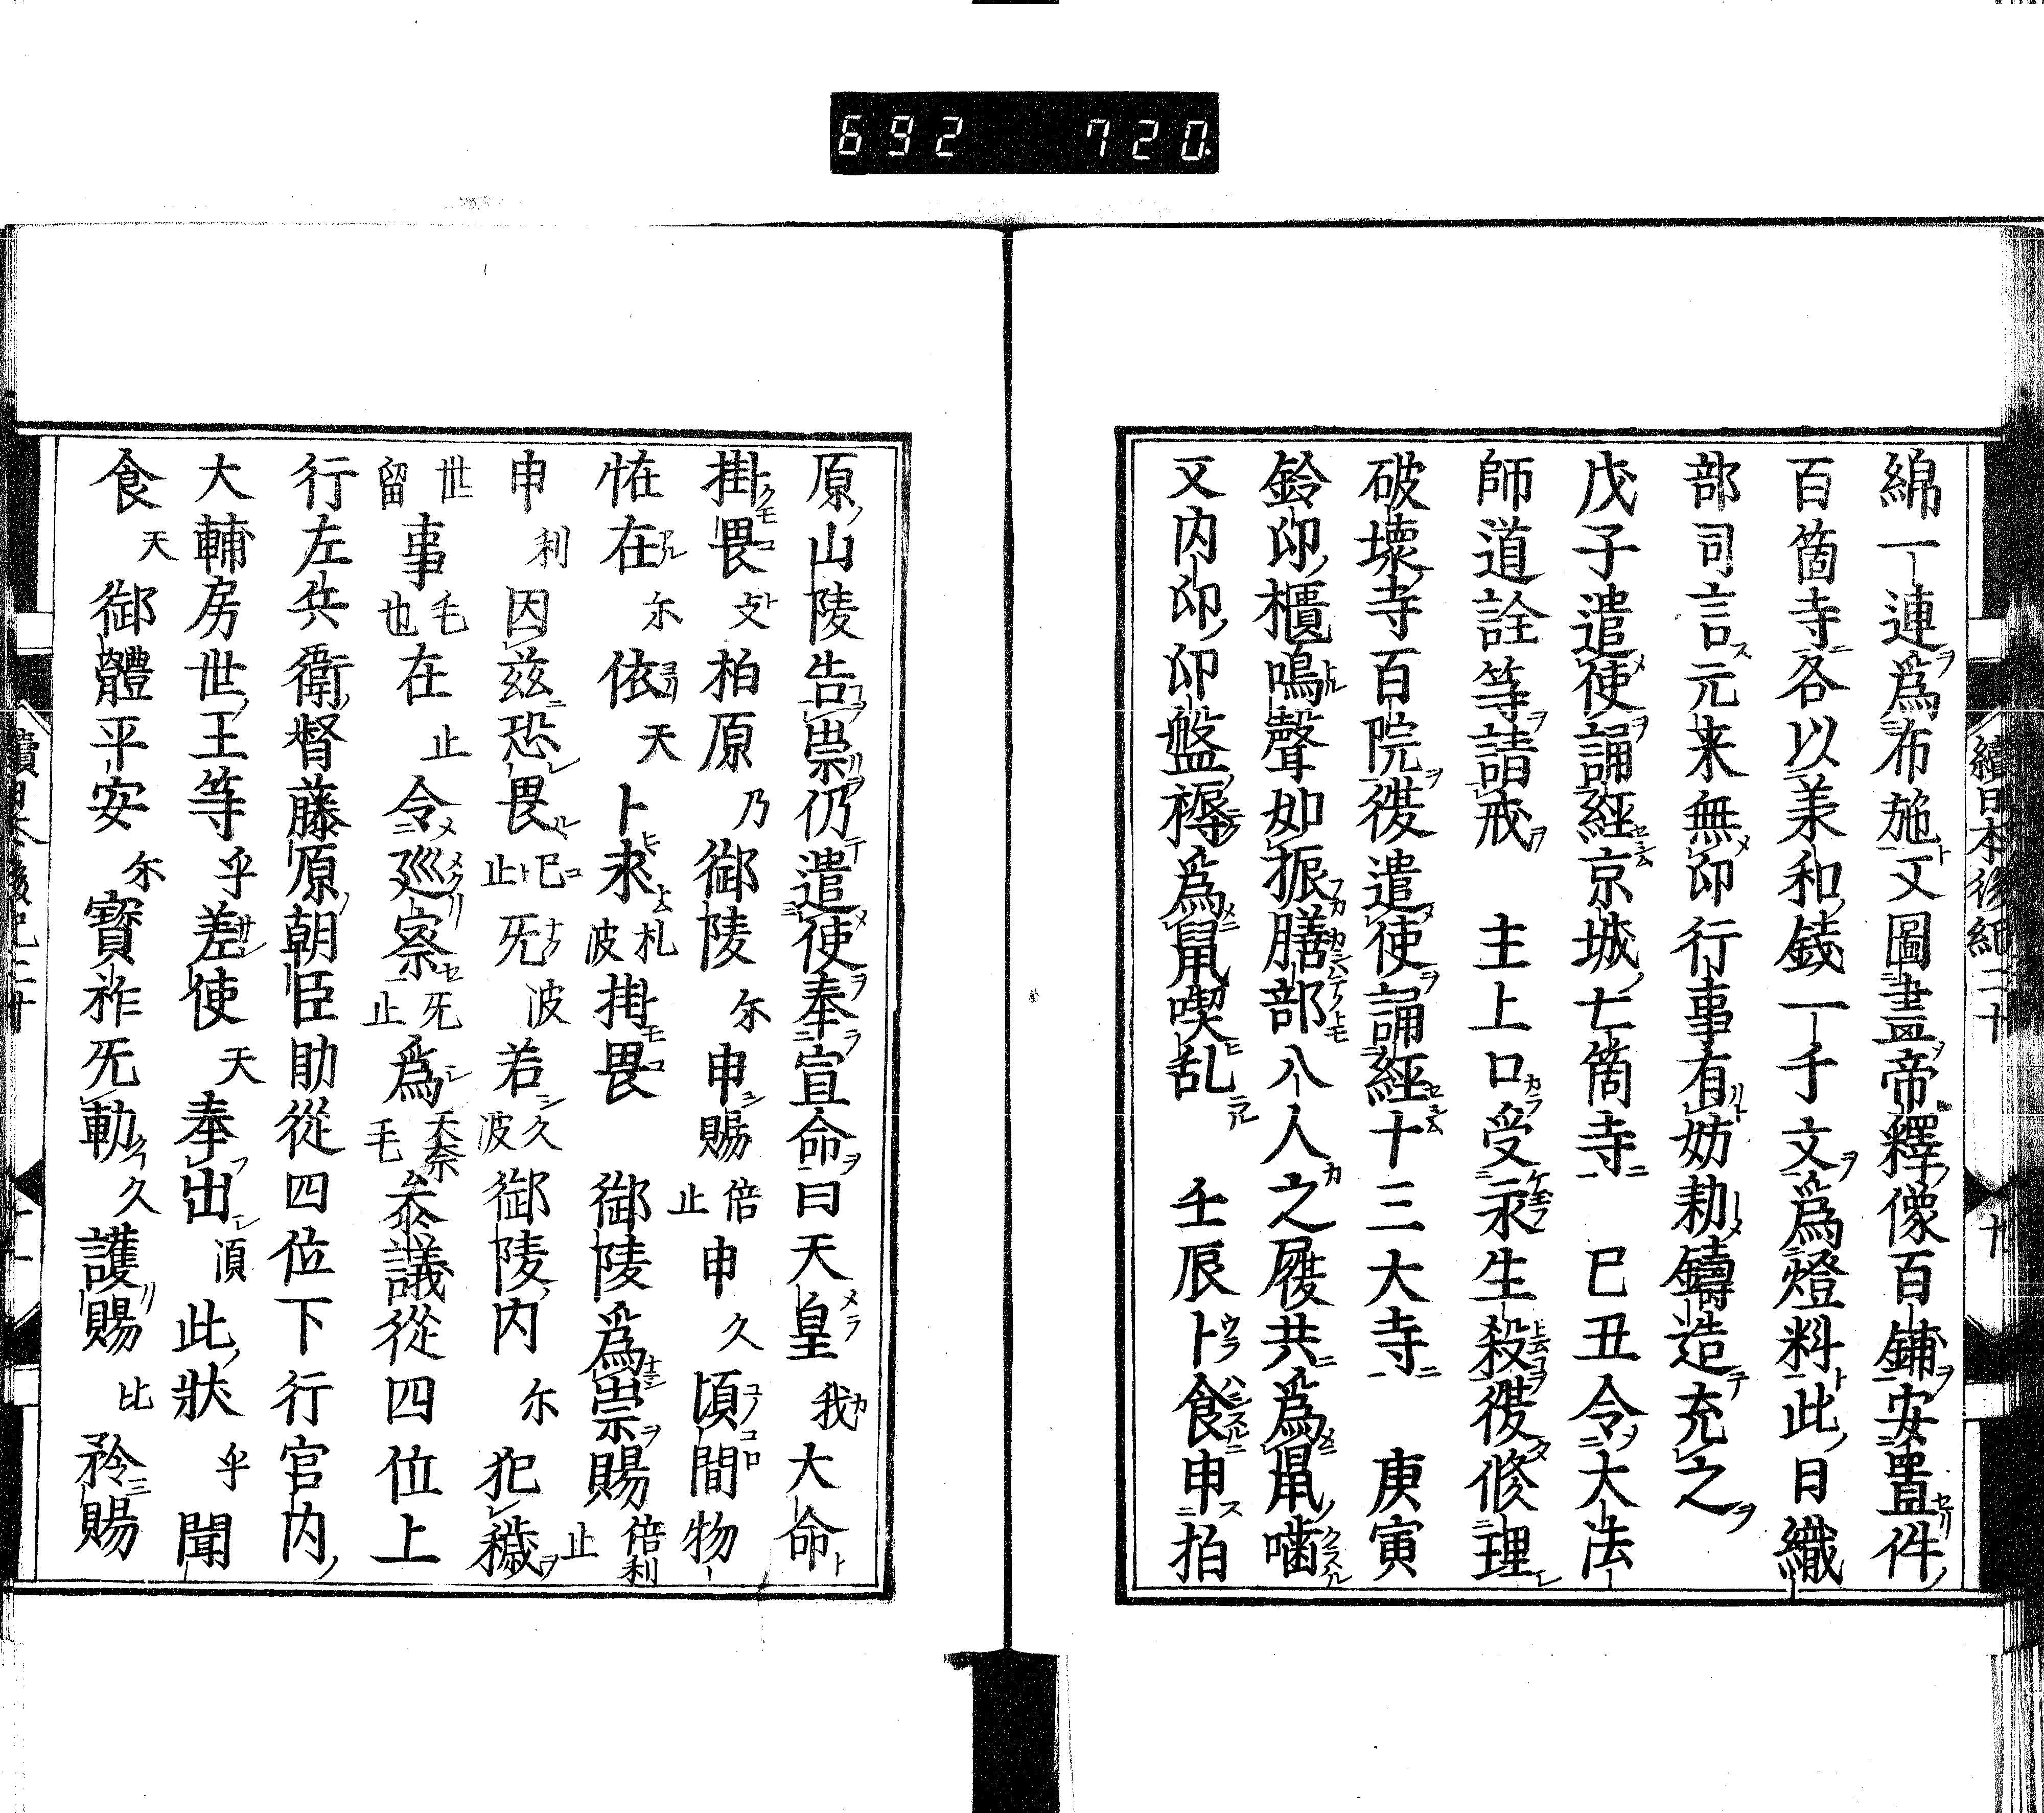 692 720
續日本後紀二十 十
綿一連爲布施又圖畫帝釋像百鋪安置件
百箇寺各以美和錢一千文爲燈料此日織
部司言元来無印行事有妨勅鑄造充之
戊子遣使誦經京城七箇寺 巳丑令大法
師道詮等請戒 主上口受永生殺後修理
破壞寺百院後遣使誦經十三大寺 庚寅
鈴印櫃鳴聲如振膳部八人之履共爲鼠噛
又内印印盤褥爲鼠喫乱 壬辰卜食申拍
原山陵告祟仍遣使奉宣命曰天皇我大命
掛畏攴柏原乃御陵尓申賜倍止申久頃間物
恠在尓依天卜求札波掛畏御陵爲祟賜倍利止
申利因茲恐畏巳止旡波若久波御陵内尓犯穢
世留事毛也在止令廵察旡止爲天奈毛叅議從四位上
行左兵衛督藤原朝臣助從四位下行宮内
大輔房世王等乎差使天奉出湏此狀乎聞
食天御體平安尓寳祚旡動久護賜比矜賜